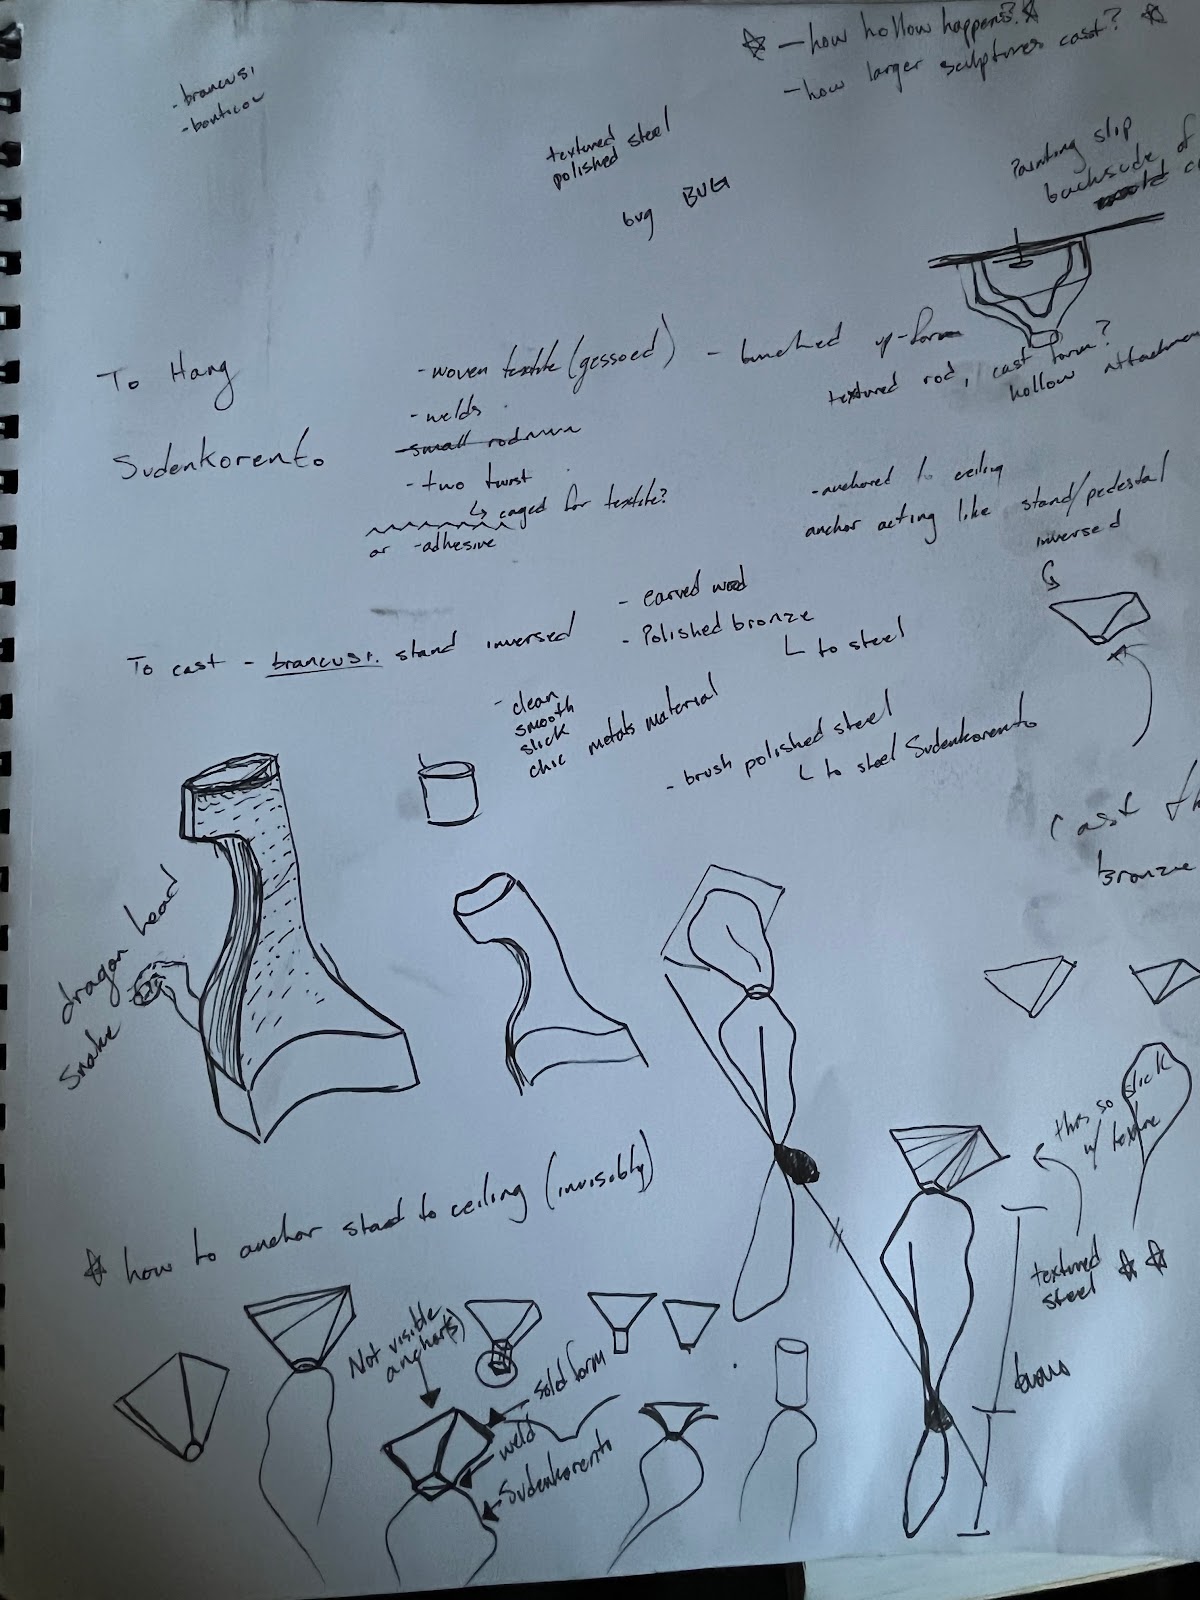 - how hollow happens?
- how larger sculptures cast?
- brancusi
textured
polished steel
bug BUG
Painting slip
backside of
To Hang
Sudenkorento
- woven textile (gessoed) - bunched up-form
- welds
small rod
- two twist
↳ caged for textile?
or - adhesive
textured rod, cast form?
hollow attachmen
- anchored to ceiling
anchor acting like stand/pedestal
inversed
To cast - brancusi. stand inversed
- carved wood
- Polished bronze
└ to steel
- clean
smooth
slick
chic metals material
- brush polished steel
└ to steel Sudenkorento
Cast th
bronze
dragon head
snake
this so slick
w/ texture
textured
steel
how to anchor stand to ceiling (invisibly)
Not visible
anchor(s)
solid form
weld
Sudenkorento